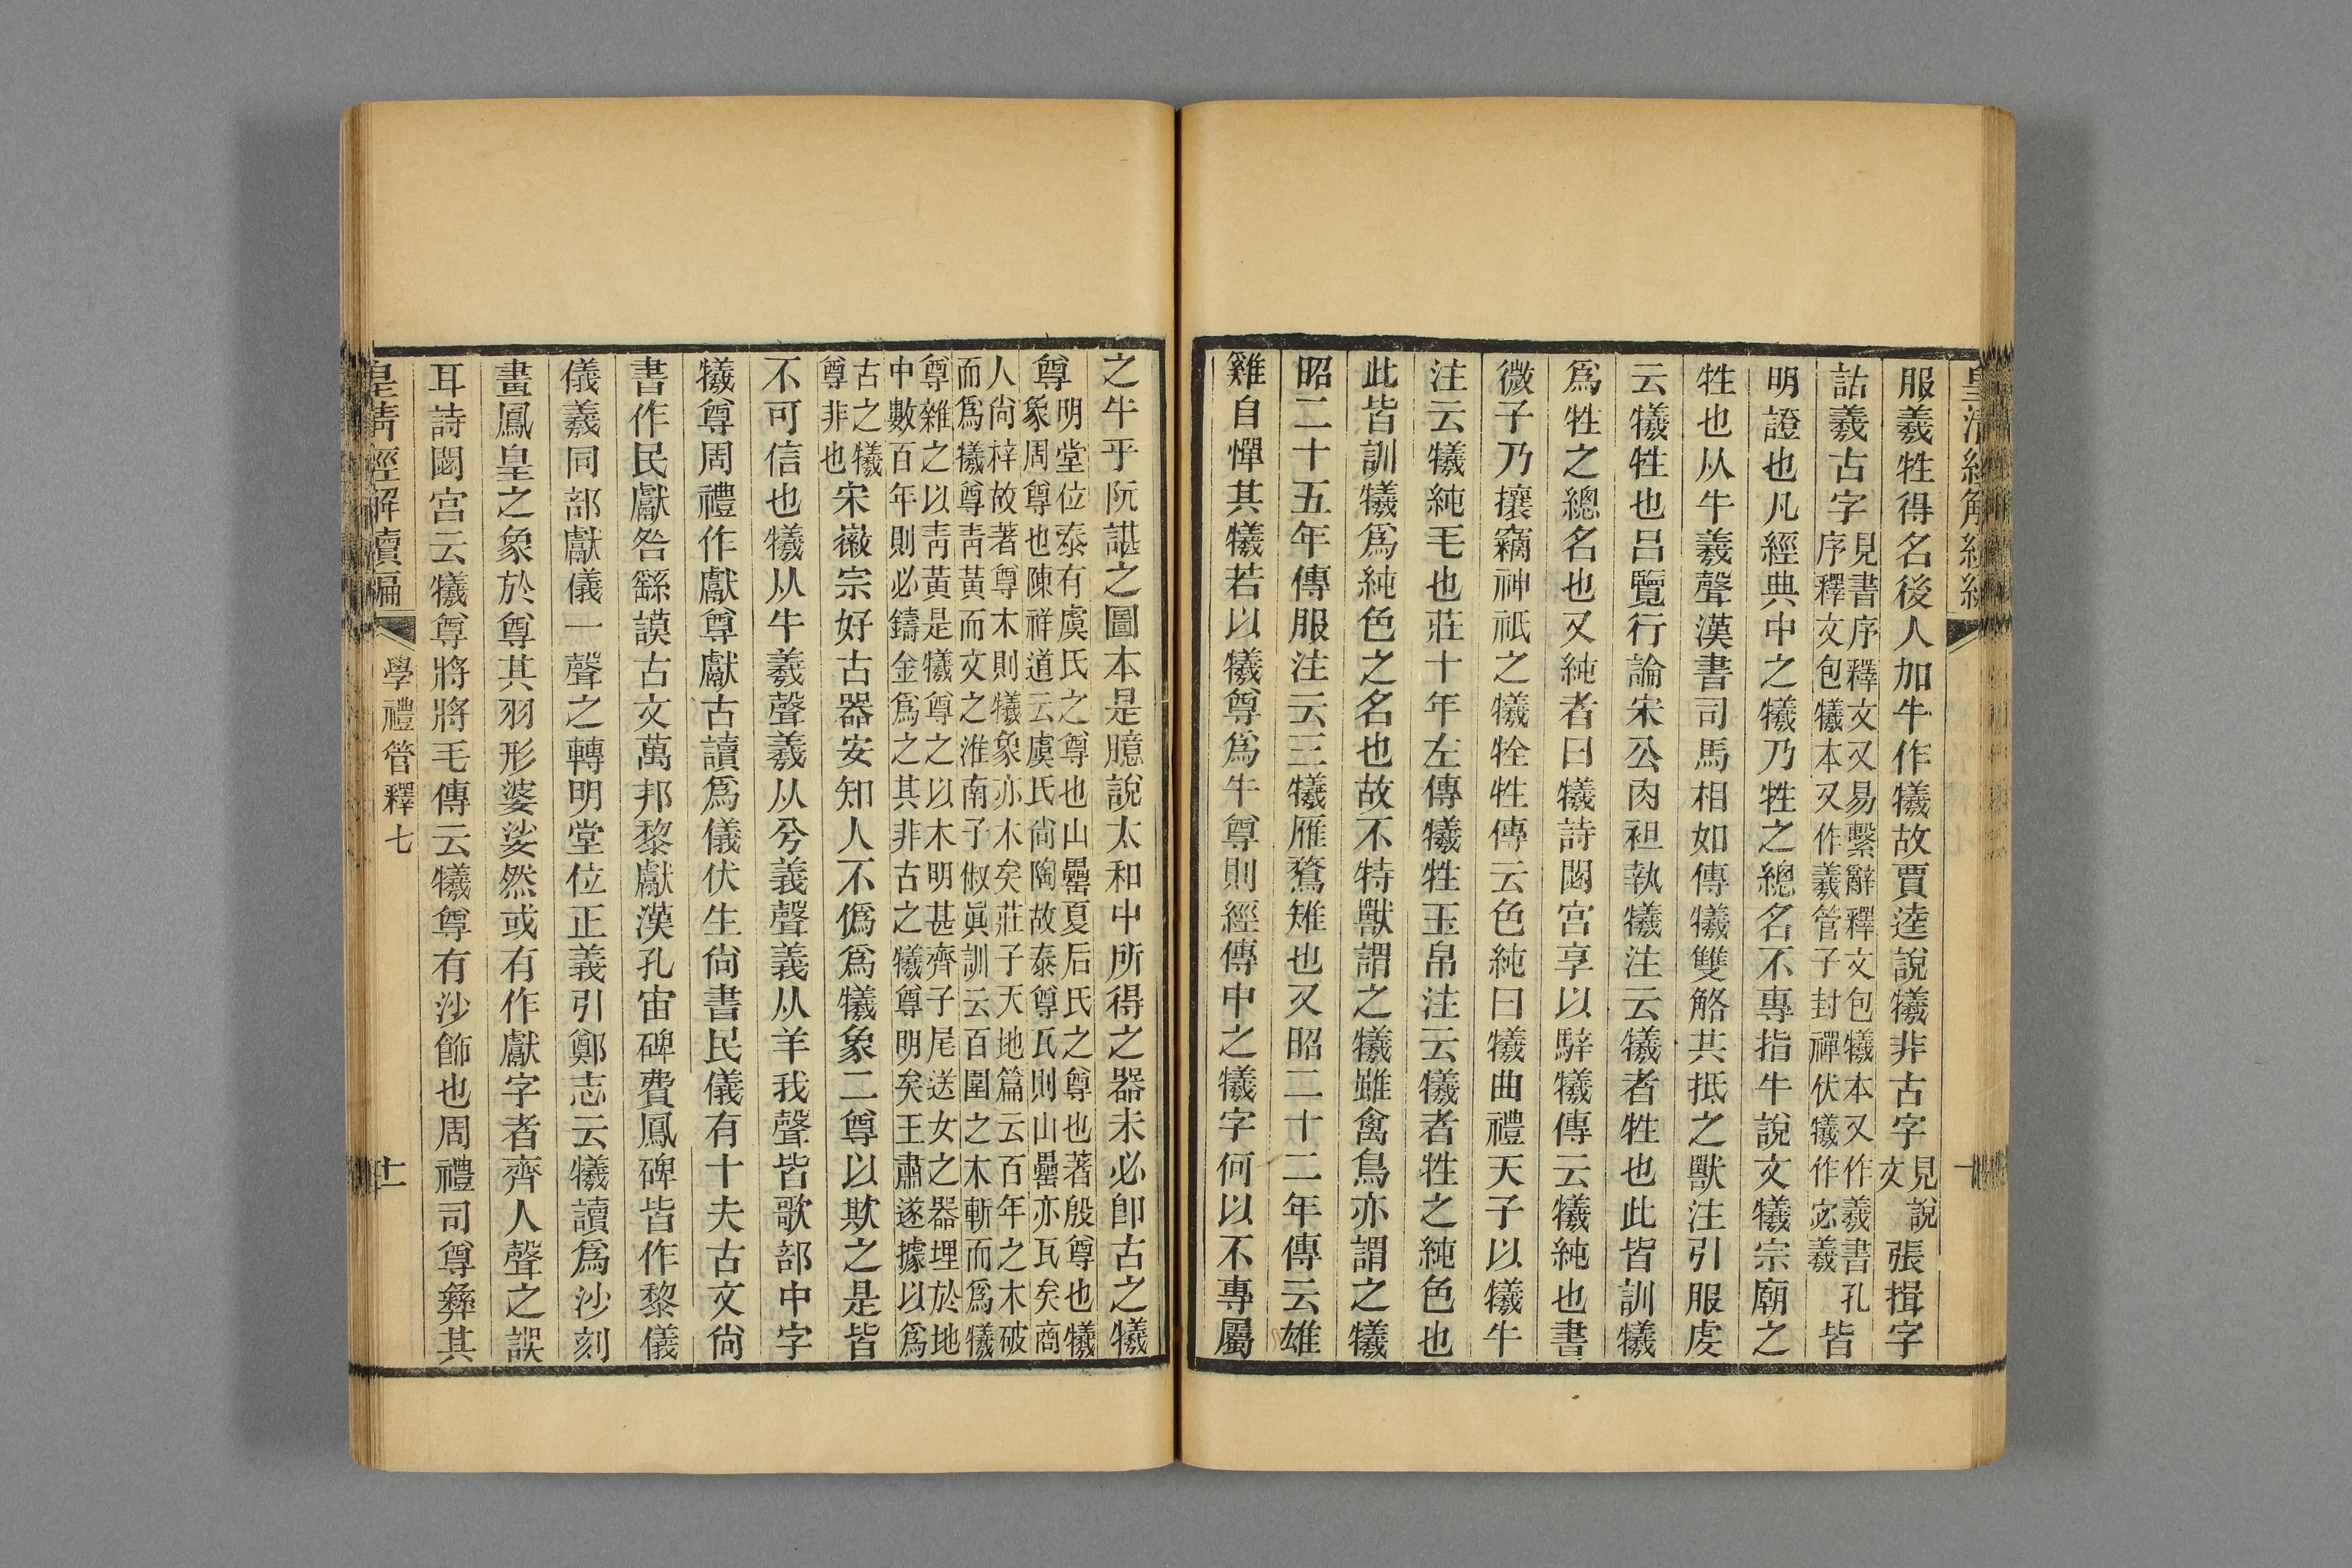 服義牲得名後人加牛作犧故賈逵說犧非古字見說文張揖字
詁羲古字見書序釋文又易繫辭釋文包犧本又作羲書孔序釋文包犧本又作羲管子封禪伏犧作宓羲皆
明證也凡經典中之犧乃牲之總名不專指牛說文犧宗廟之
牲也从牛羲聲漢書司馬相如傳犧雙觡共抵之獸注引服虔
云犧牲也呂覽行論宋公肉袒執犧注云犧者牲也此皆訓犧
爲牲之總名也又純者曰犧詩閟宮享以騂犧傳云犧純也書
微子乃攘竊神祇之犧牷牲傳云色純曰犧曲禮天子以犧牛
注云犧純毛也莊十年左傳犧牲玉帛注云犧者牲之純色也
此皆訓犧爲純色之名也故不特獸謂之犧雖禽鳥亦謂之犧
昭二十五年傳服注云三犧雁鶩雉也又昭二十二年傳云雄
雞自憚其犧若以犧尊爲牛尊則經傳中之犧字何以不專屬
之牛乎阮諶之圖本是臆說太和中所得之器未必卽古之犧
尊明堂位泰有虞氏之尊也山罍夏后氏之尊也著殷尊也犧象周尊也陳祥道云虞氏尙陶故泰尊瓦則山罍亦瓦矣商
人尙梓故著尊木則犧象亦木矣莊子天地篇云百年之木破而爲犧尊靑黃而文之淮南子俶眞訓云百圍之木斬而爲犧
尊雜之以靑黃是犧尊之以木明甚齊子尾送女之器埋於地中數百年則必鑄金爲之其非古之犧尊明矣王肅遂據以爲
古之犧尊非也宋徽宗好古器安知人不僞爲犧象二尊以欺之是皆
不可信也犧从牛羲聲羲从兮義聲義从羊我聲皆歌部中字
犧尊周禮作獻尊獻古讀爲儀伏生尙書民儀有十夫古文尙
書作民獻咎繇謨古文萬邦黎獻漢孔宙碑費鳳碑皆作黎儀
儀羲同部獻儀一聲之轉明堂位正義引鄭志云犧讀爲沙刻
畫鳳皇之象於尊其羽形婆娑然或有作獻字者齊人聲之誤
耳詩閟宮云犧尊將將毛傳云犧尊有沙飾也周禮司尊彝其
皇淸經解續編 學禮管釋七 十一